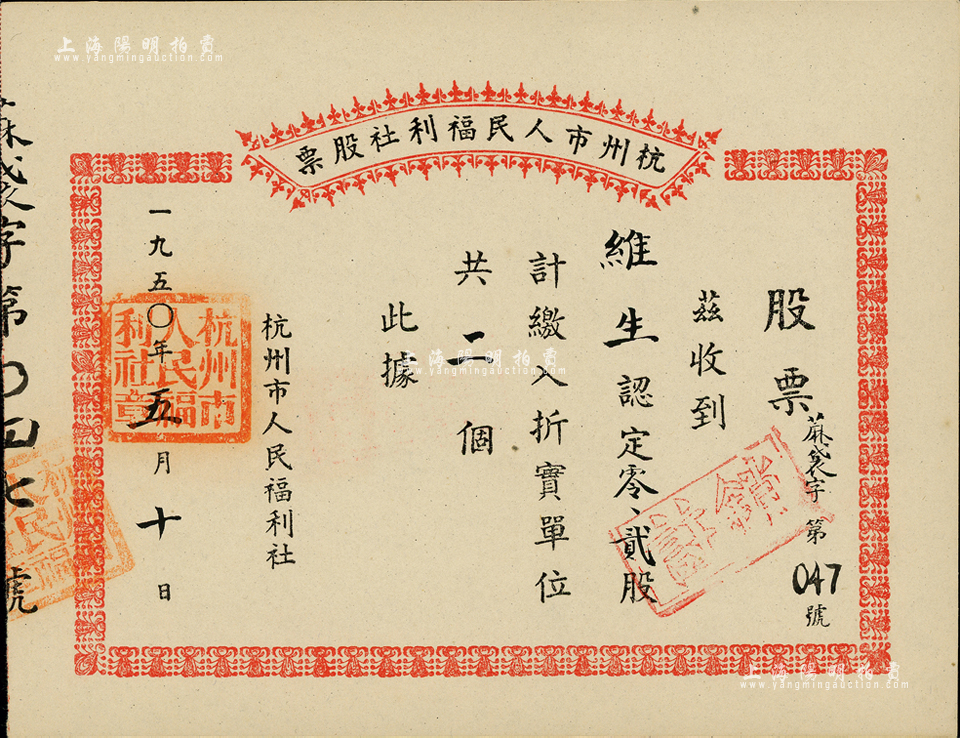 上海陽明拍賣
www.yangmingauction.com
杭州市人民福利社股票
股票
蔴袋字第047號
茲收到
維生認定零、貳股
計繳入折實單位
共二個
此據
杭州市人民福利社
一九五〇年五月十日
杭州市人民福利社章
蔴袋字第〇四七號
上海陽明拍賣
www.yangmingauction.com
上海陽明拍賣
www.yangmingauction.com